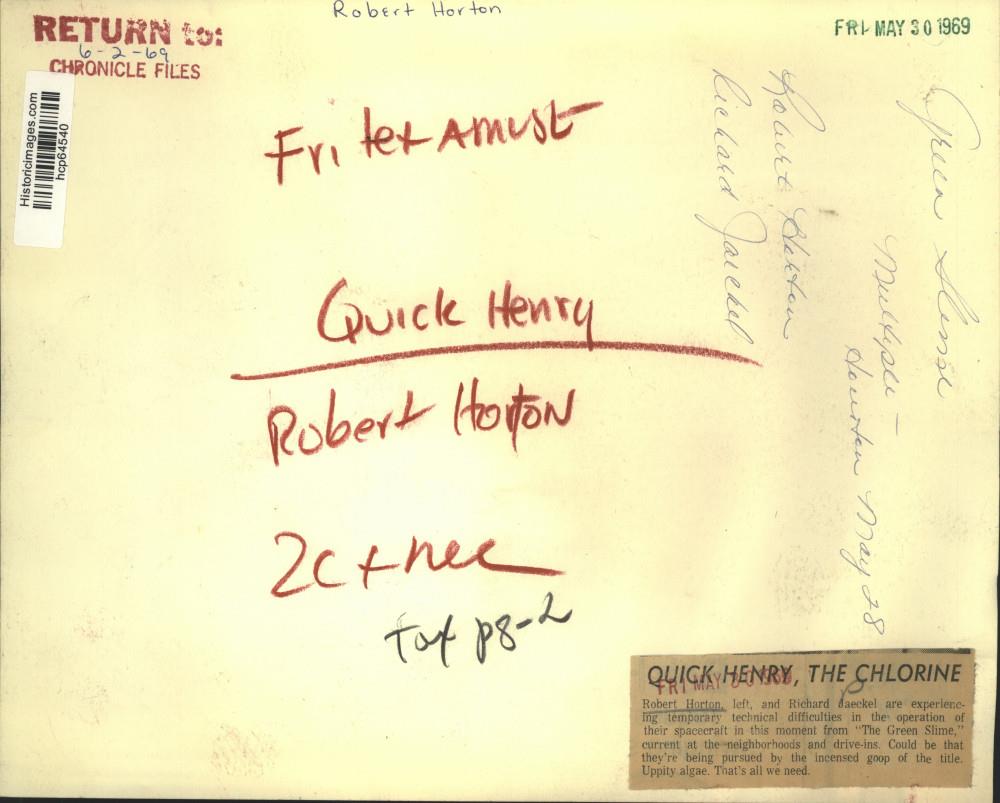 Robert Horton
RETURN to:
6-2-69
CHRONICLE FILES
FRI MAY 30 1969
Historicimages.com
hcp64540
Fri tex Amust
Quick Henry
Robert Horton
2c x nec
pg-2
Green Slime
Multiple -
Houston May 28
Robert Horton
Richard Jaeckel
QUICK HENRY, THE CHLORINE
FRI MAY 30 1969
Robert Horton, left, and Richard Jaeckel are experienc-
ing temporary technical difficulties in the operation of
their spacecraft in this moment from "The Green Slime,"
current at the neighborhoods and drive-ins. Could be that
they're being pursued by the incensed goop of the title.
Uppity algae. That's all we need.